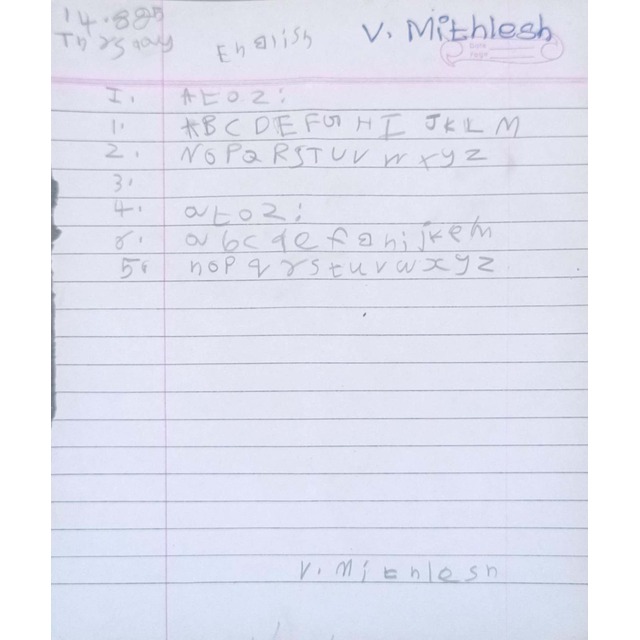 14.8.85
Thrsday
English
V. Mithlesh
Date
Page
I. A to Z:
1. ABCDEFGHIJKLM
2. NOPQRSTUVWXYZ
3.
4. a to z:
r. abcdefghijkem
5. nopqrstuvwxyz
V. Mithlesh